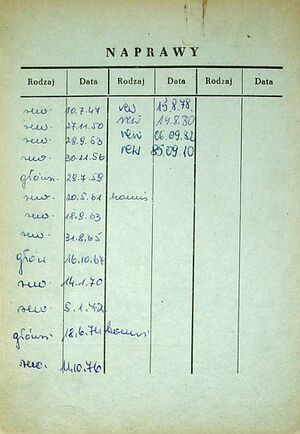 NAPRAWY
Rodzaj Data Rodzaj Data Rodzaj Data
rew. 10.7.47 rew 19.8.78
rew. 27.11.50 rew 19.8.80
rew. 28.9.53 rew 06.09.82
rew. 30.11.56 rew 85.09.10
główn. 29.7.59
rew. 20.5.61
rew. 18.9.63
rew. 31.8.65
głów 16.10.67
rew. 14.1.70
rew. 5.1.72
główn 18.6.74
rew. 11.10.76